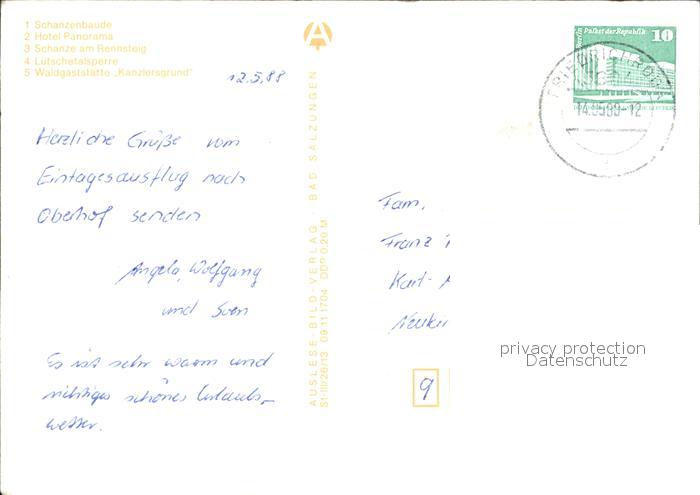 1 Schanzenbaude
2 Hotel Panorama
3 Schanze am Rennsteig
4 Lütschetalsperre
5 Waldgaststätte „Kanzlersgrund"
12.5.88
Herzliche Grüße vom
Eintagesausflug nach
Oberhof senden
Angela, Wolfgang
und Sven
Es ist sehr warm und
richtiges schönes Urlaubs-
wetter.
AUSLESE-BILD-VERLAG · BAD SALZUNGEN
S1-III/26/13 09 11 1704 DDR 0,20 M
Berlin Palast der Republik
10
DDR
14.05.88-12
Fam.
Franz
Karl-
9
privacy protection
Datenschutz